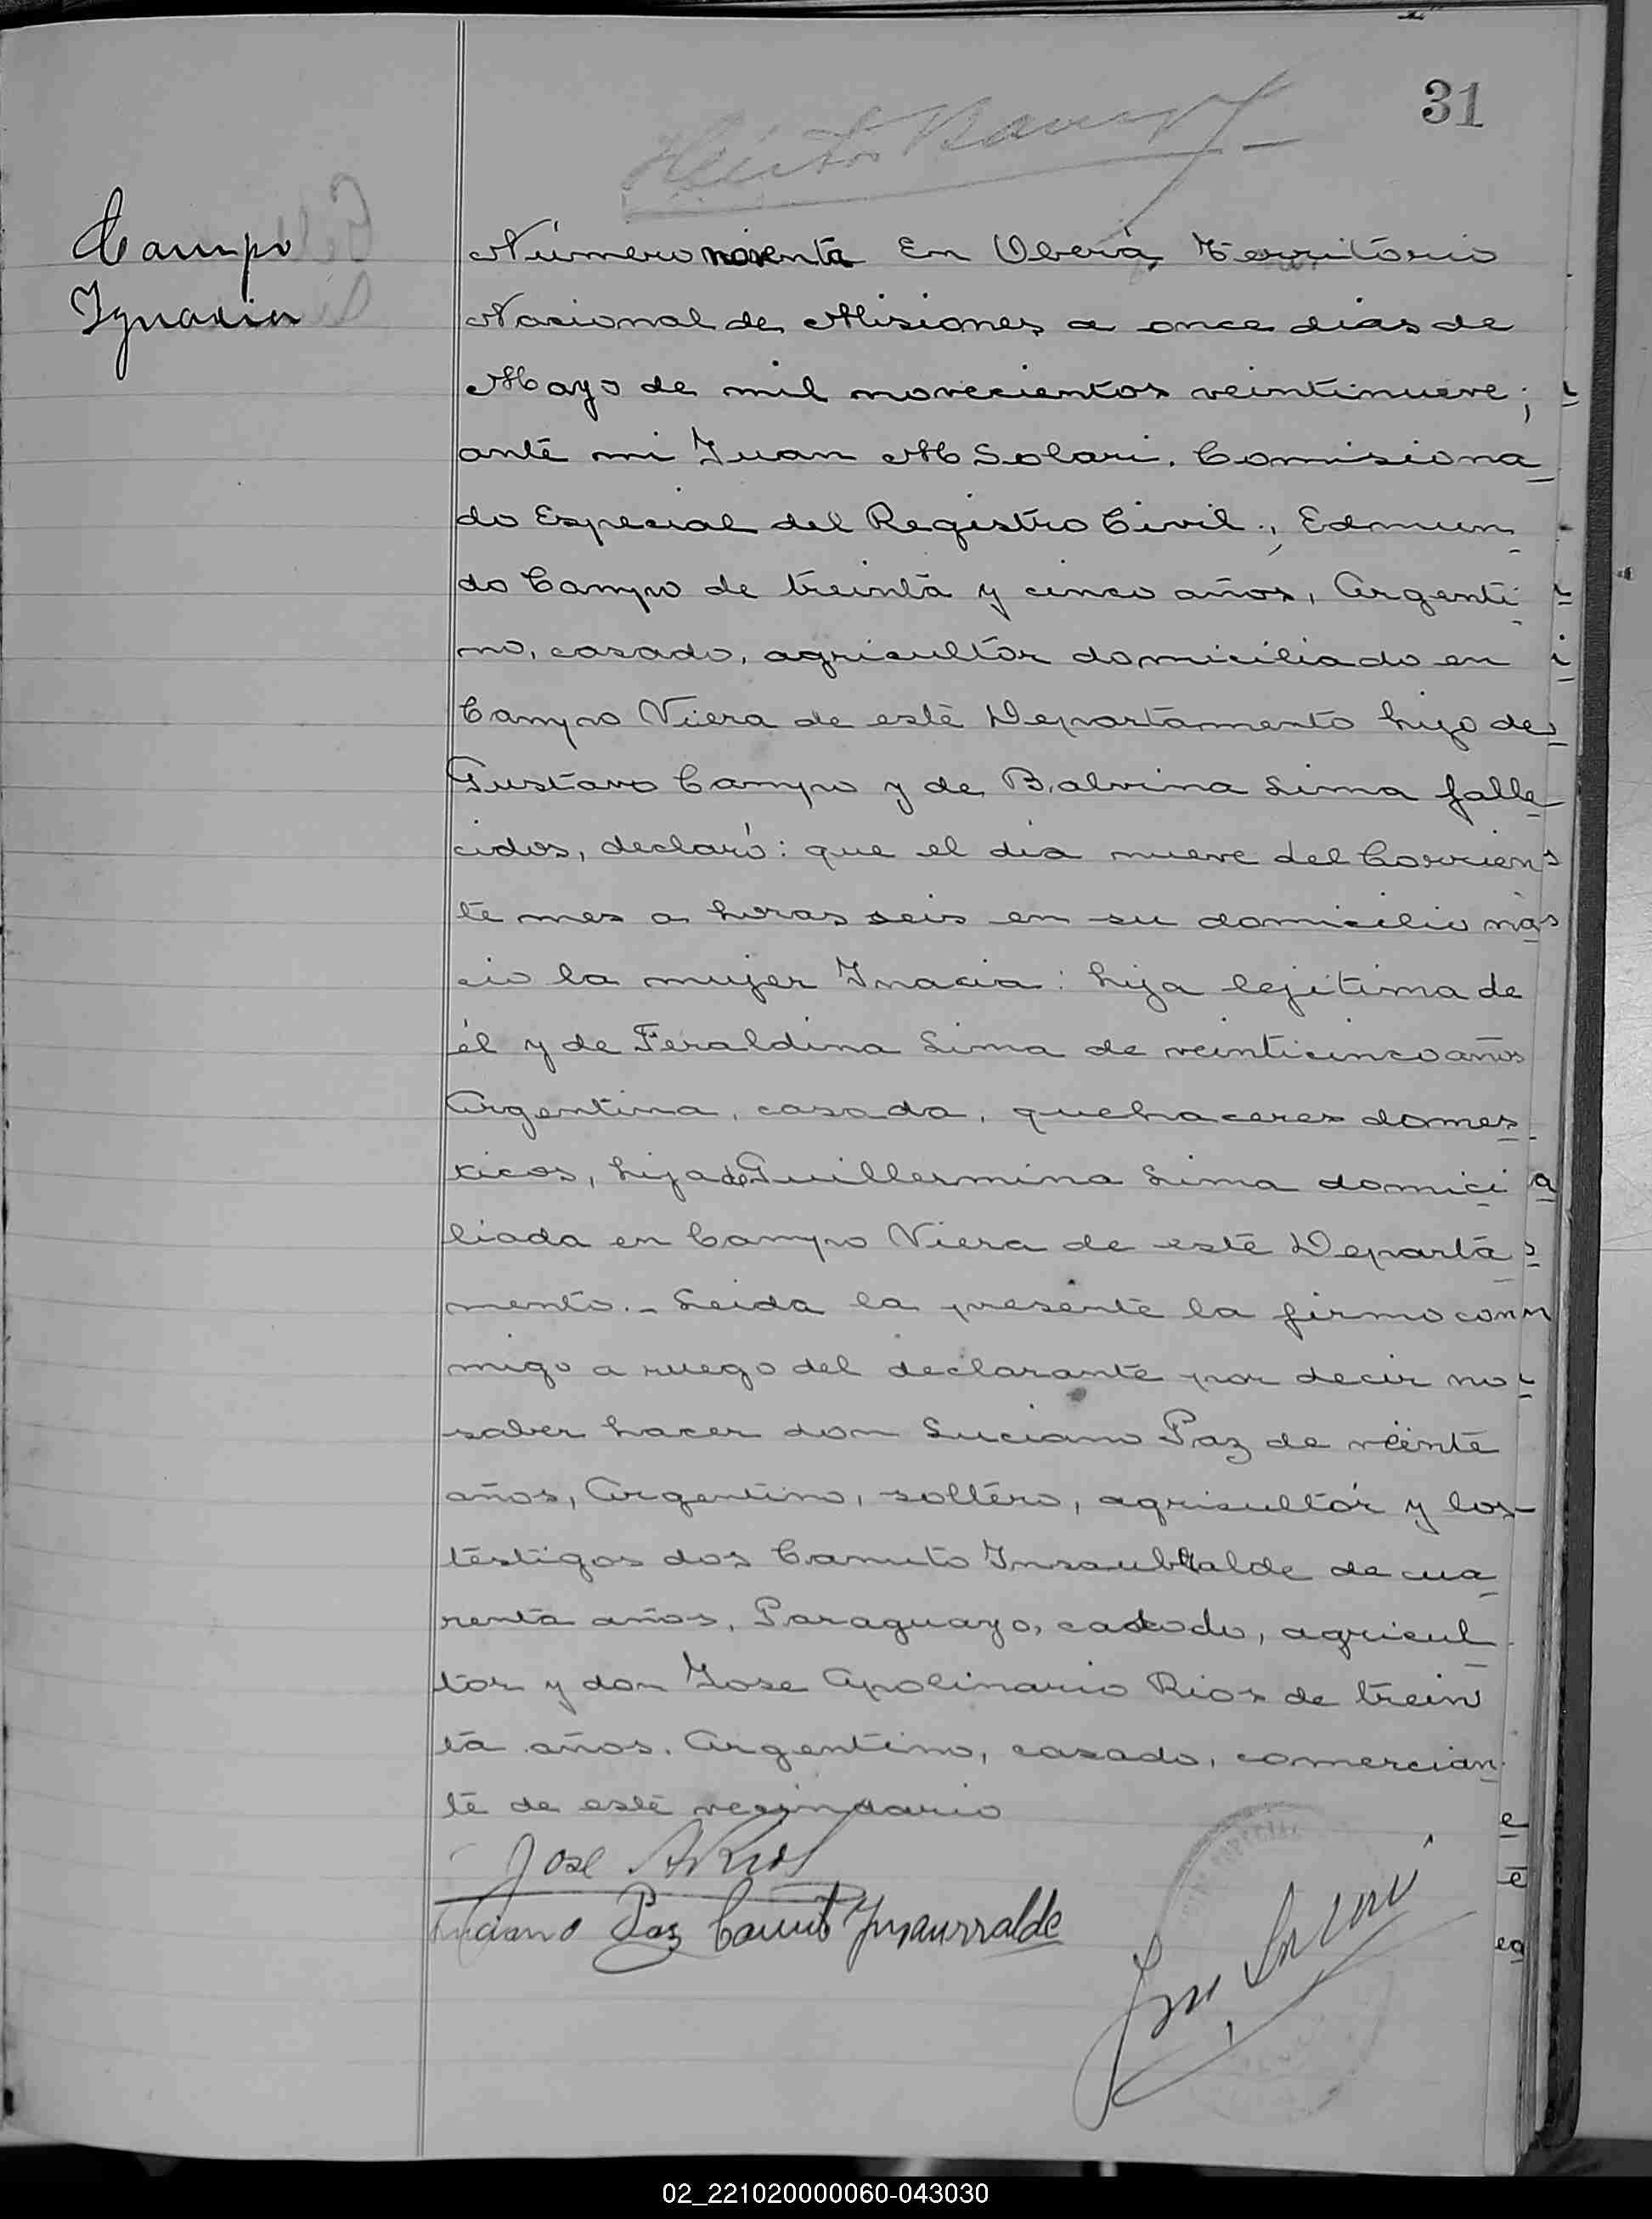 31
Campo
Ignacia
Número noventa En Oberá, Territorio
Nacional de Misiones a once dias de
Mayo de mil novecientos veintinueve;
ante mi Juan M Solari. Comisiona
do Especial del Registro Civil., Edmun
do Campo de treinta y cinco años, Argenti
no, casado, agricultor domiciliado en
Campo Viera de este Departamento hijo de
Gustavo Campo y de Balvina Lima falle
cidos, declaró: que el dia nueve del Corrien
te mes a horas seis en su domicilio na
cio la mujer Inacia: hija lejitima de
él y de Feraldina Lima de veinticinco años
Argentina, casada, quehaceres domes
ticos, hija de Guillermina Lima domici
liada en Campo Viera de este Departa
mento._ Leida la presente la firmo con
migo a ruego del declarante por decir no
saber hacer don Luciano Paz de veinte
años, Argentino, soltero, agricultor y los
testigos dos Canuto Insaurralde de cua
renta años, Paraguayo, casado, agricul
tor y don Jose Apolinario Rios de trein
ta años. Argentino, casado, comercian
te de este vecindario
Jose A Rios
Luciano Paz Canuto Ynsaurralde
02_221020000060-043030